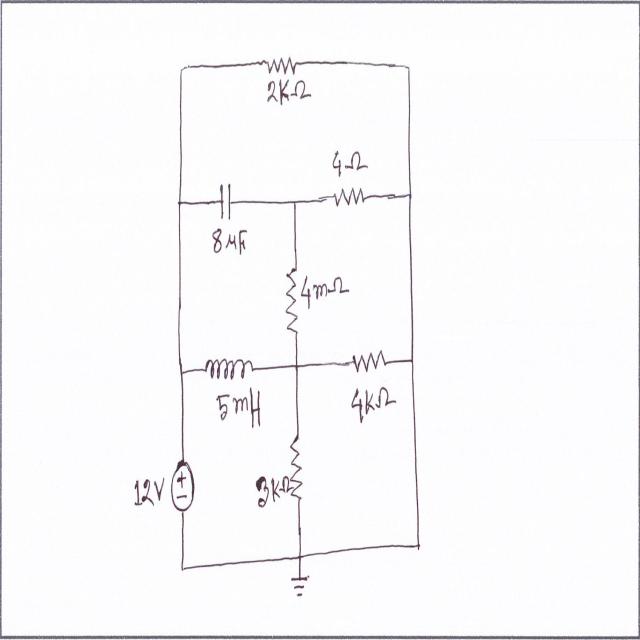 2KΩ
4Ω
8μF
4mΩ
5mH
4KΩ
12V
+
−
3KΩ